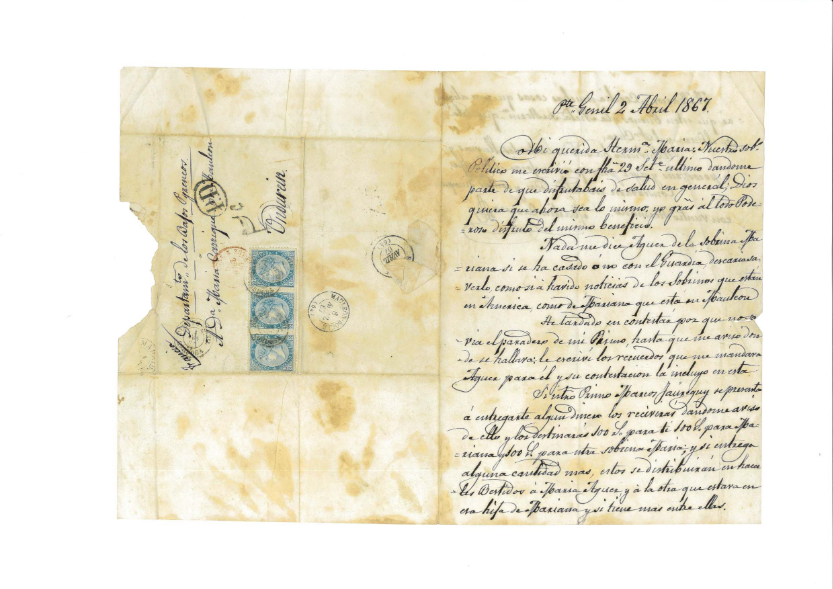 Pte. Genil 2 Abril 1867.
Mi querida Hermna. Maria: Nuestro sob.
Politico me escrivió con fha 29 Set.e ultimo dandome
parte de que disfrutabais de salud en general; Dios
quiera que ahora sea lo mismo, yo grãs al todo Pode-
=roso disfruto del mismo beneficio.
Nada me dice Aguer de la sobrina Ma-
=riana si se ha casado ó no con el Guardia descansa
verlo, como si á havido noticias de los Sobrinos que estan
en America como de Mariana que está en Mauleon
He tardado en contestar por que no sa-
-via el paradero de mi Primo, hasta que me aviso don
de se hallava; le escrivi los recuerdos que me mandava
Aguer para él y su contestacion la incluyo en esta
Si ntro Primo Marcos Jaureguy se presenta
á entregarte algun dinero los reciviras dandome aviso
de ello y los destinarás 100 para ti 100 para Ma-
riana y 100 para ntra sobrina Maria; y si entrega
alguna cantidad mas, estos se distribuirán en hacer
les Bestidos á Maria Aguer y á la otra que estava en
esa hija de Mariana y si tiene mas entre ellas.
Departamto. de los Bajos Pyreneos
A Da. Maria
Mauleon
PD